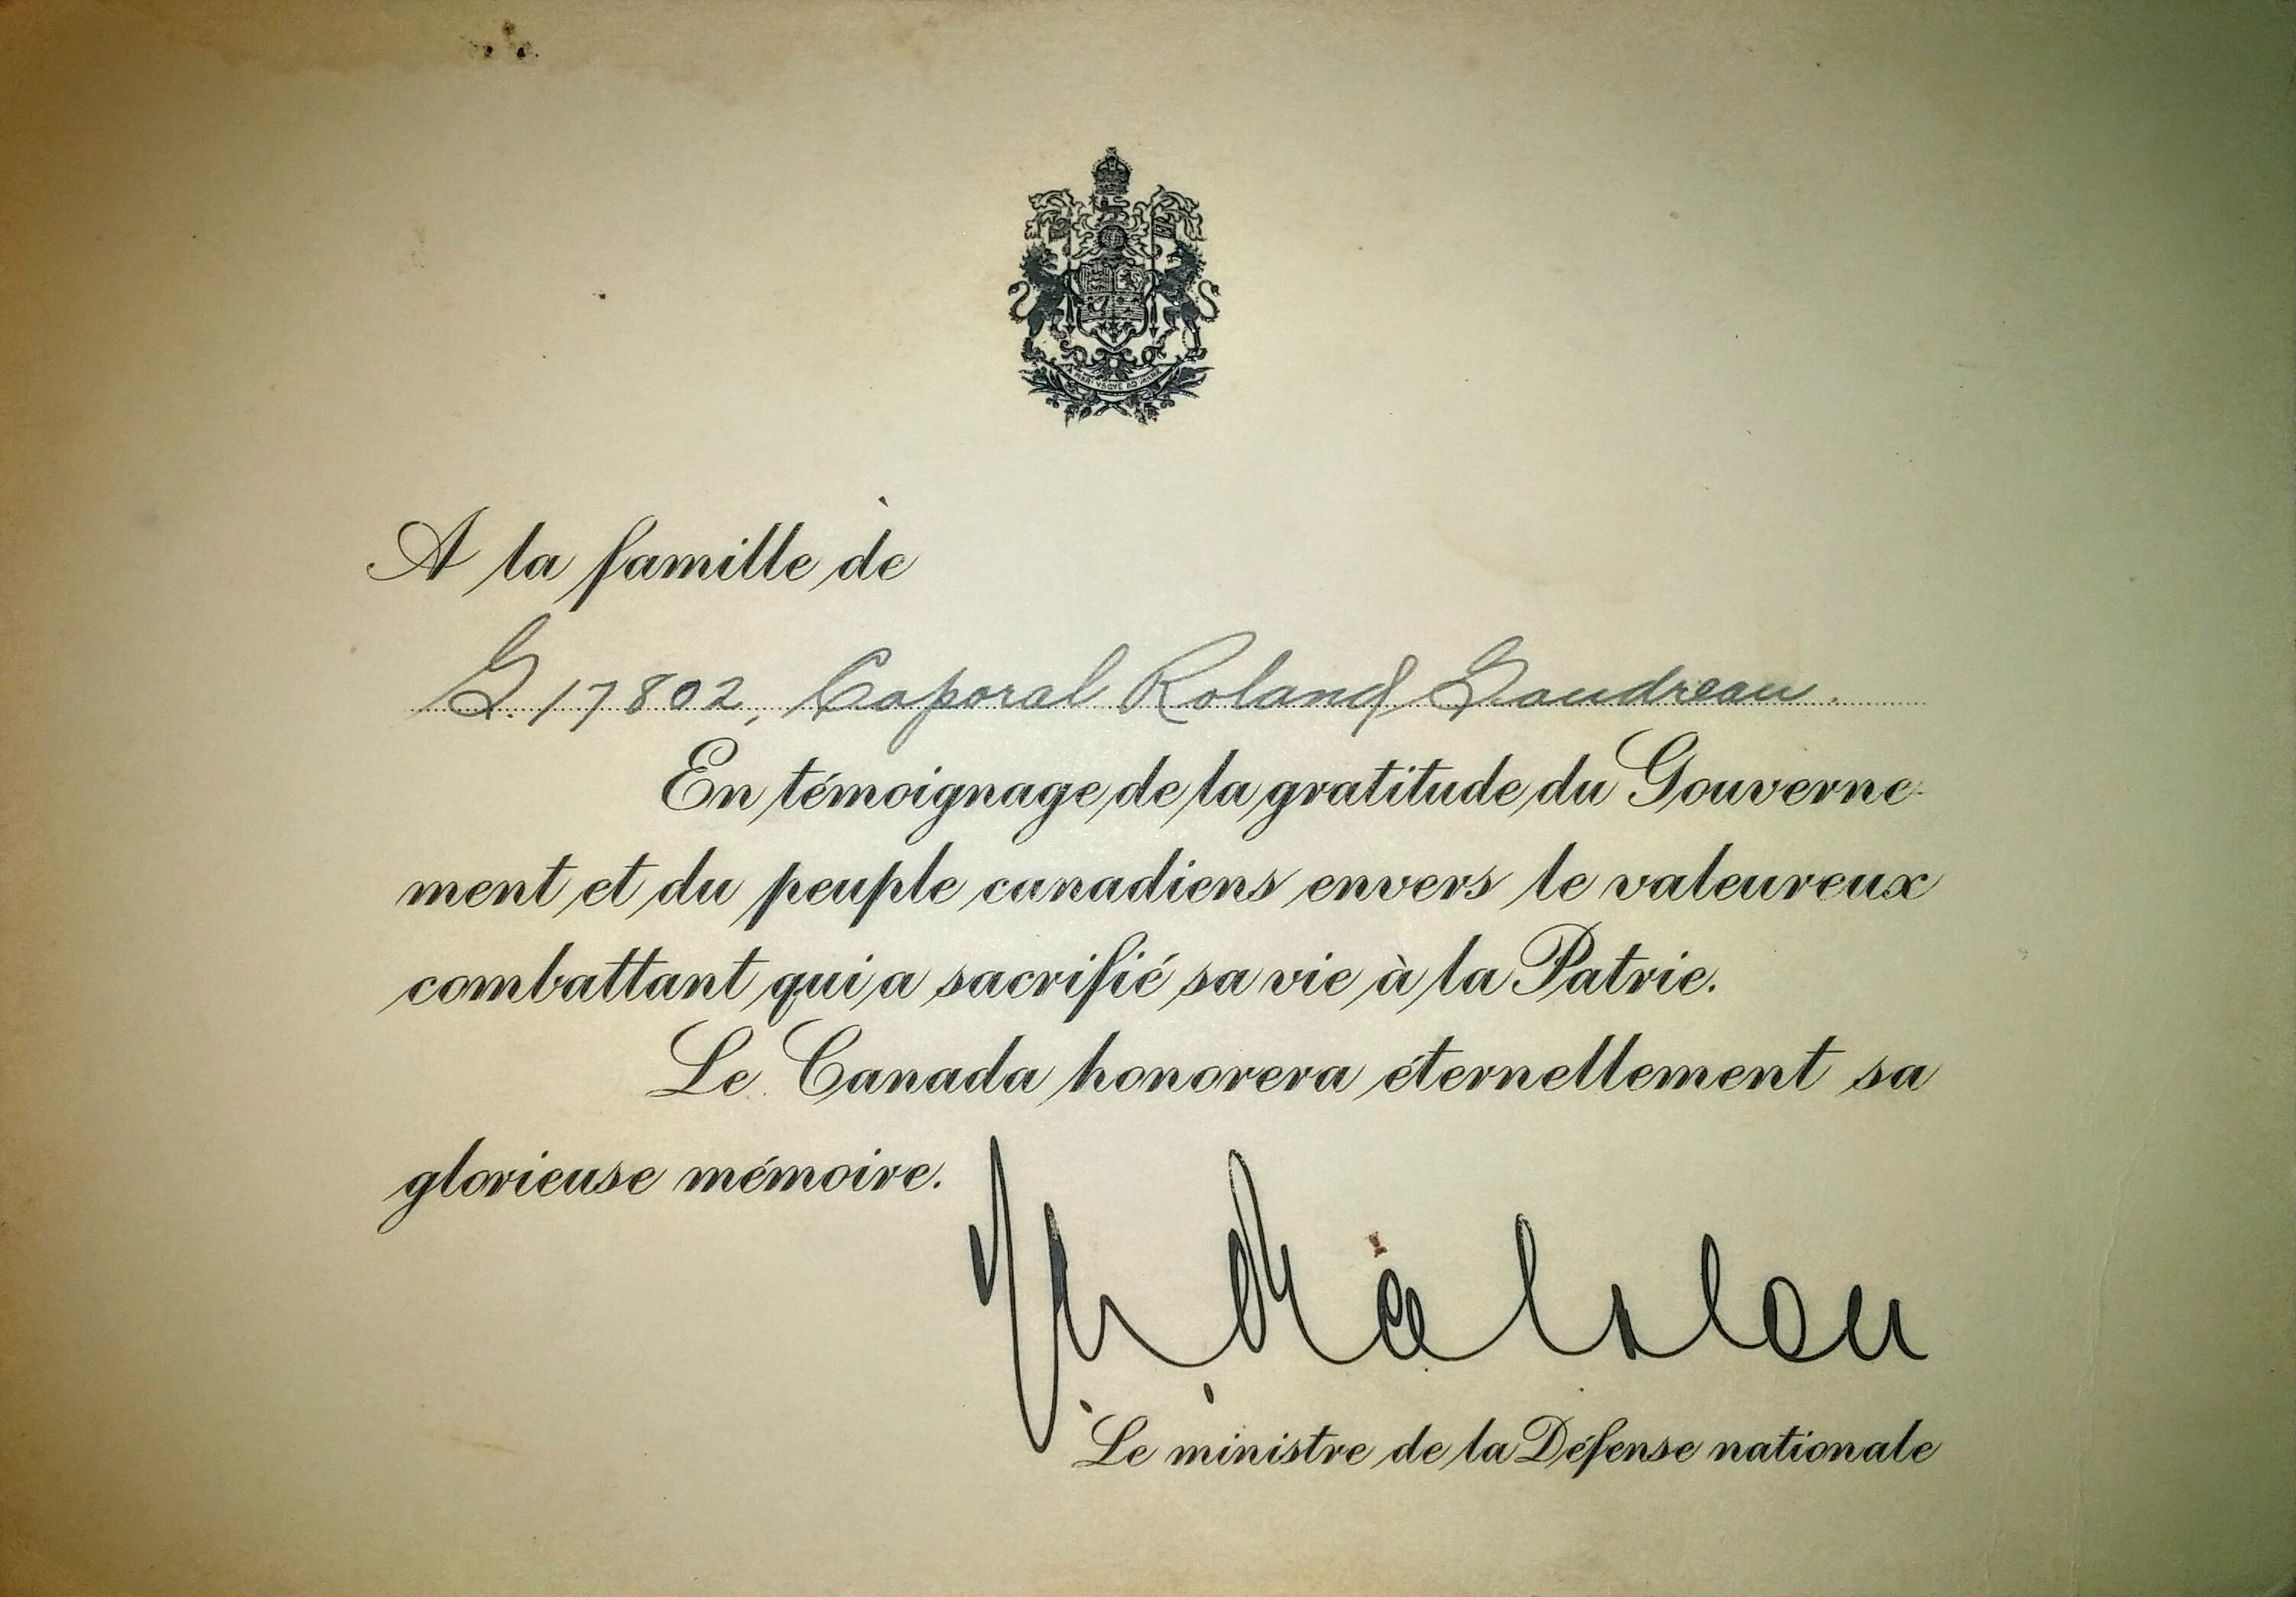 A MARI VSQVE AD MARE
A la famille de
G.17802, Caporal Roland Gaudreau.
En témoignage de la gratitude du Gouverne-
ment et du peuple canadiens envers le valeureux
combattant qui a sacrifié sa vie à la Patrie.
Le Canada honorera éternellement sa
glorieuse mémoire.
Ralston
Le ministre de la Défense nationale